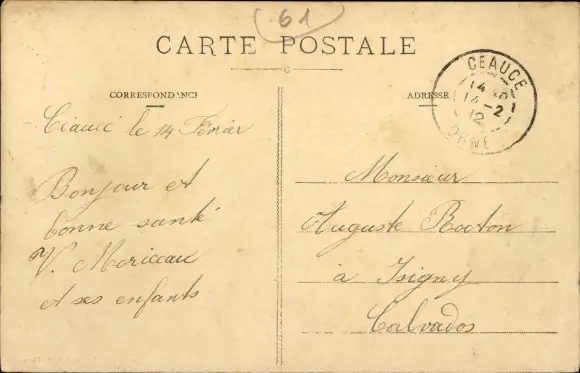 61
CARTE POSTALE
CORRESPONDANCE
ADRESSE
CEAUCE
14
14 -2
12
ORNE
Ceaucé le 14 Février
Bonjour et
bonne santé
V. Moriceau
et ses enfants
Monsieur
Auguste Rocton
à Isigny
Calvados